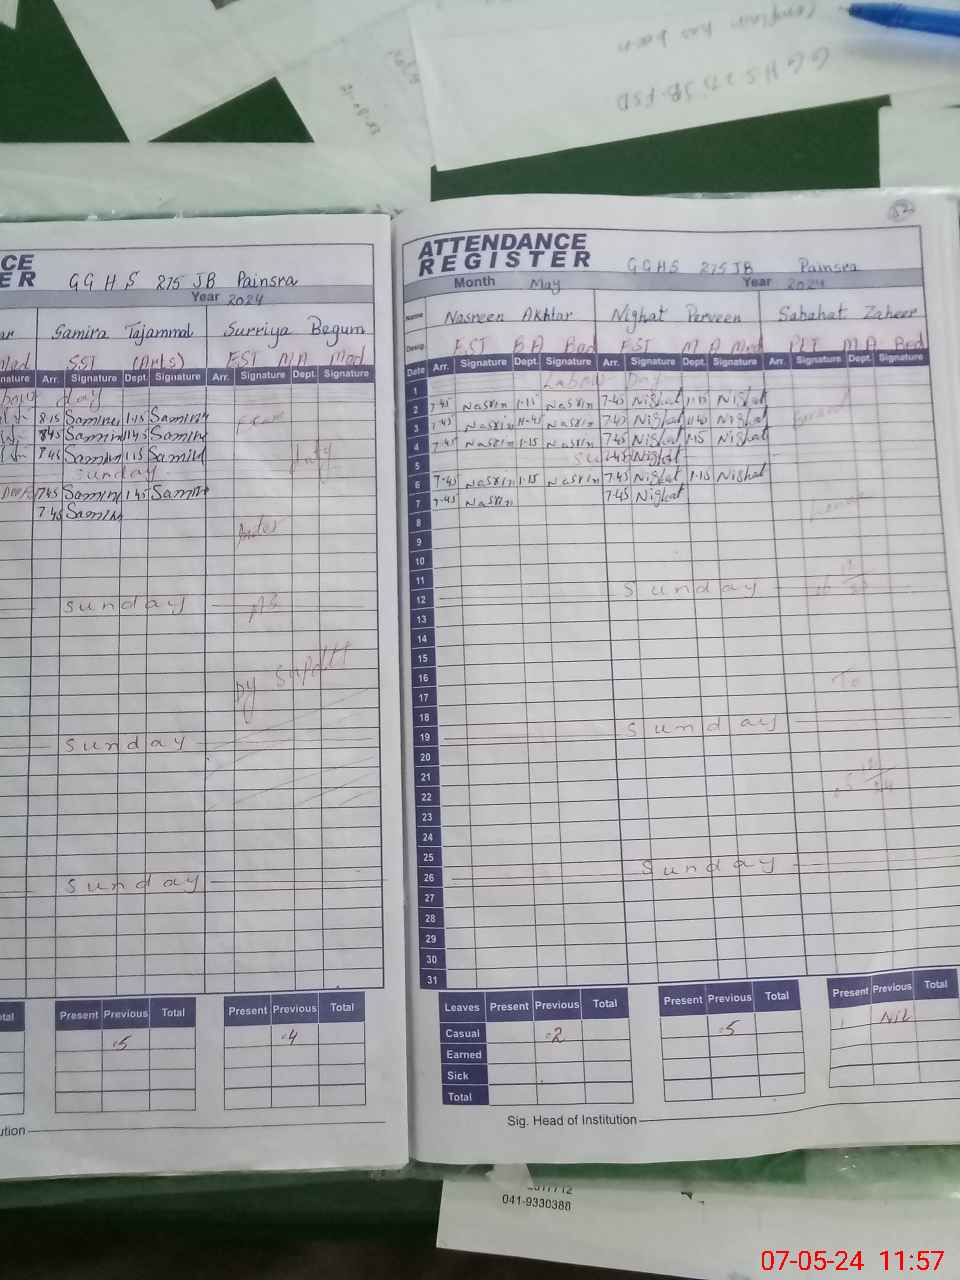 Complain has been
GGHS 275 JB FSD
CE
ER
GGHS 275 JB Painsra
Year 2024
Samira Tajammal Surriya Begum
SST (Arts) EST MA Med
nature Arr. Signature Dept. Signature Arr. Signature Dept. Signature
day
8·15 Samina 1·15 Samina Exam
1145 Samina
7·45 Samina 1·15 Samina Duty
Sunday
7·45 Samina 1·45 Samina
7·45 Samina
Sunday
Dy Supdtt
Sunday
Sunday
Present Previous Total Present Previous Total
.5 .4
ution
ATTENDANCE
REGISTER
GGHS 275 JB Painsra
Month May Year 2024
Name Nasreen Akhtar Nighat Perveen Sabahat Zaheer
Desig. EST BA Bed EST MA Med MA Bed
Date Arr. Signature Dept. Signature Arr. Signature Dept. Signature Arr. Signature Dept. Signature
1 Labour Day
2 7·45 Nasrin 1·15 Nasrin 7·45 Nighat 1·15 Nighat
3 7·45 Nasrin 11·45 Nasrin 7·45 Nighat 11·45 Nighat
4 7·45 Nasrin 1·15 Nasrin 7·45 Nighat 1·15 Nighat
5 7·45 Nighat
6 7·45 Nasrin 1·15 Nasrin 7·45 Nighat 1·15 Nighat
7 7·45 Nasrin 7·45 Nighat
8
9
10
11
12 Sunday
13
14
15
16 To
17
18
19 Sunday
20
21
22
23
24
25
26 Sunday
27
28
29
30
31
Leaves Present Previous Total Present Previous Total Present Previous Total
Casual .2 .5 Nil
Earned
Sick
Total
Sig. Head of Institution
041-9330388
07-05-24 11:57